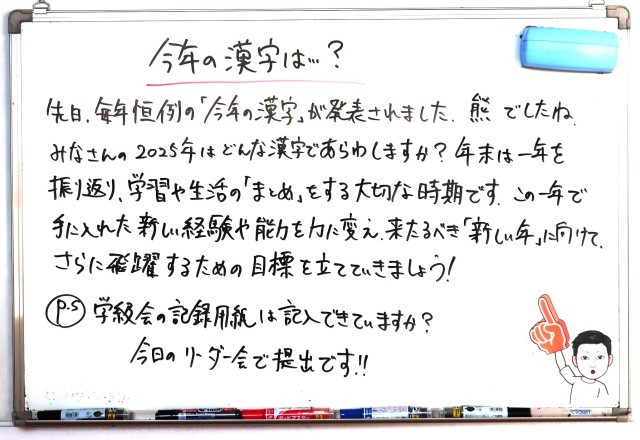 今年の漢字は…？
先日、毎年恒例の「今年の漢字」が発表されました。熊でしたね。
みなさんの2025年はどんな漢字であらわしますか？年末は一年を
振り返り、学習や生活の「まとめ」をする大切な時期です。この一年で
手に入れた新しい経験や能力を力に変え、来たるべき「新しい年」に向けて、
さらに飛躍するための目標を立てていきましょう！
P.S 学級会の記録用紙は記入できていますか？
今日のリーダー会で提出です!!